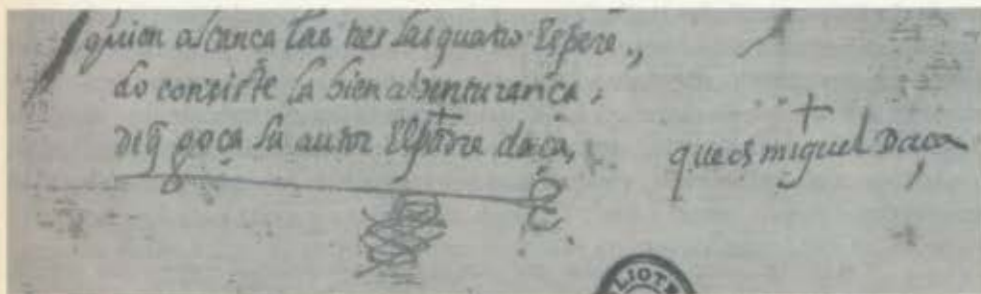 quien alcanca las tres las quatro Espere,
do consiste la bien abenturanca,
De q̃ goça su autor El padre daça,
que es miguel Daça
BLIOTE